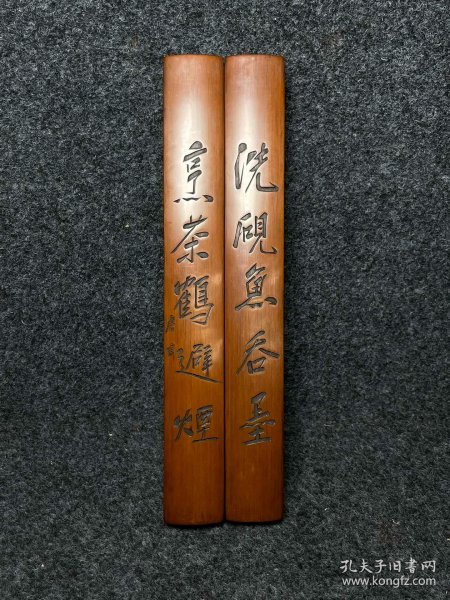 洗硯魚吞墨
烹茶鶴避煙
孔夫子旧书网
www.kongfz.com